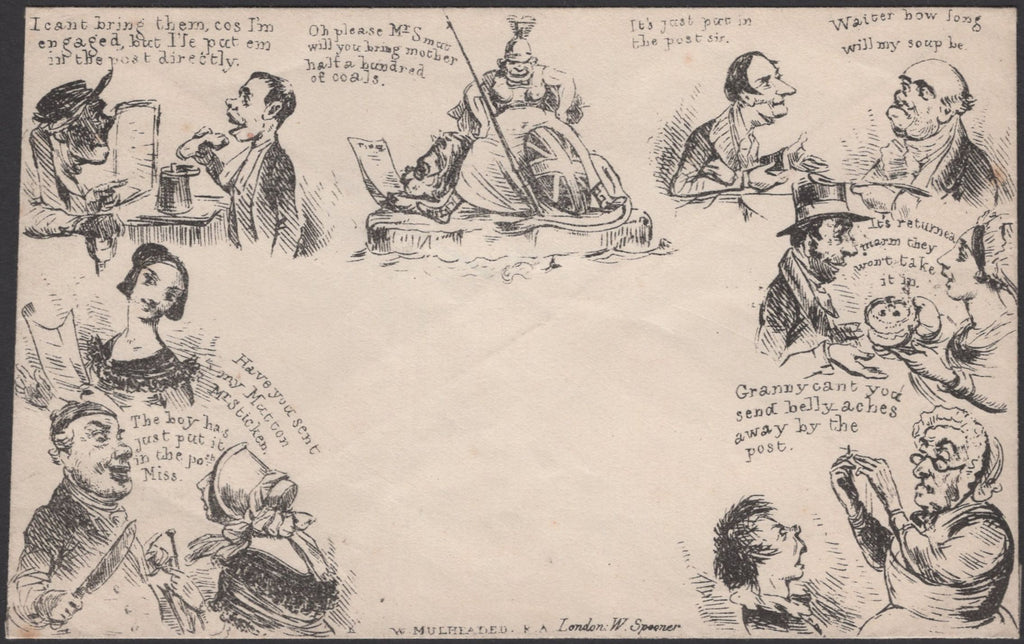 I cant bring them, cos I'm
engaged, But I'le put em
in the post directly.
Oh please Mr Smut
will you bring mother
half a hundred
of coals.
It's just put in
the post sir.
Waiter how long
will my soup be
It's returned
marm they
won't take
it in.
Have you sent
my Mutton
Mr Sticken.
The boy has
just put it
in the post
Miss.
Granny cant you
send belly aches
away by the
post.
W. MULHEADED. R A London: W. Spooner